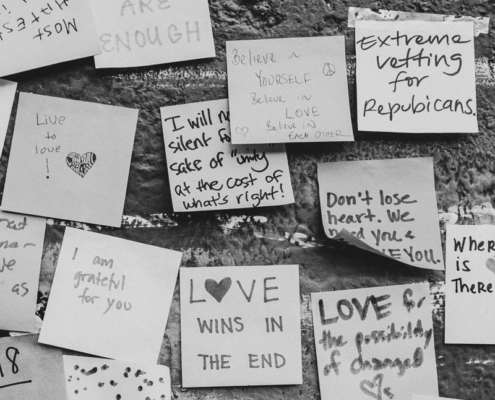 MOST
ARE
ENOUGH
Believe in
YOURSELF
Believe in
LOVE
Believe IN
EACH OTHER
Extreme
vetting
for
Repubicans.
Live
to
love
!
I will no
silent fo
sake of "unity
at the cost of
what's right!
Don't lose
heart. We
need you &
YOU.
I am
grateful
for you
as
LOVE
WINS IN
THE END
LOVE for
the possibility
of changed
Wher
is
There
18